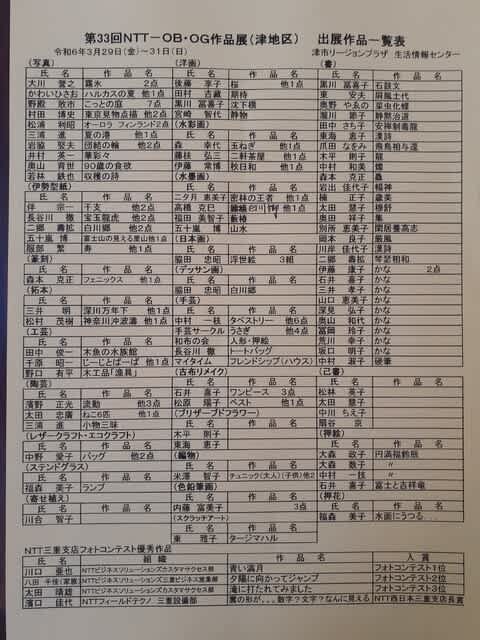 第33回NTT－OB・OG作品展（津地区）　出展作品一覧表
令和6年3月29日(金)～31日(日)　津市リージョンプラザ　生活情報センター
（写真）
氏名　作品名
大川　誉之　霧氷　2点
かわいひさお　ハルカスの夏　他1点
野殿　敦市　こっとの庭　7点
村田　博史　東京見物点描　他2点
松浦　利昭　オーロラ　フィンランド2点
三浦　進　夏の港　他1点
岩脇　堅夫　団結の輪　他2点
井村　英一　華影々
奥山　育世　90歳の食欲
若林　鉄也　収穫の詩
（伊勢型紙）
氏名　作品名
伴　宗一　干支　他2点
長谷川　徹　宝玉龍虎　他2点
二郷　壽拡　白川郷　他2点
五十嵐　博　富士山の見える里山他1点
服部　繁　寿　他1点
（篆刻）
氏名　作品名
森本　克正　フェニックス　他1点
（拓本）
氏名　作品名
三井　明　深川万年下　他1点
松村　茂樹　神奈川沖波濤　他1点
（工芸）
氏名　作品名
田中　俊一　木魚の水族館
千原　昭一　じーじとばーば　他1点
野口　有平　木工品「漁具」
（陶芸）
氏名　作品名
濱野　正光　流動　他3点
太田　忠廣　ねこ6匹　他1点
三浦　進　小物三昧
（レザークラフト・エコクラフト）
氏名　作品名
中野　愛子　バッグ　他2点
（ステンドグラス）
氏名　作品名
福森　美子　ランプ
（寄せ植え）
氏名　作品名
川合　智子
（洋画）
氏名　作品名
後藤　享子　桜　他1点
田村　吉蔵　期待
黒川　冨喜子　沈下橋
宮崎　智代　静物
（水彩画）
氏名　作品名
森　幸代　玉ねぎ　他1点
藤枝　弘三　二軒茶屋　他1点
伊藤　常博　秋日和　他1点
（水墨画）
氏名　作品名
二夕月　恵美子　密林の王者　他1点
高橋　克巳　他1点
福田　美智子
五十嵐　博　山水
（日本画）
氏名　作品名
脇田　忠昭　浮世絵　3組
（デッサン画）
氏名　作品名
脇田　忠昭　白川郷
（手芸）
氏名　作品名
中村　一枝　タペストリー　他6点
手芸サークル　うさぎ　他4点
和布の会　人形・押絵
長谷川　徹　トートバッグ
マイタイム　フレンドシップ(ハウス)
（古布リメイク）
氏名　作品名
石井　喜子　ワンピース　3点
松原　陽子　ベスト　他1点
（プリザーブドフラワー）
氏名　作品名
木平　則子
東海　恵子
（編物）
氏名　作品名
米澤　智子　チュニック(大人)(子供)他2点
（色鉛筆画）
氏名　作品名
内藤　富美子　3点
（スクラッチアート）
氏名　作品名
東　雅子　タージマハル
（書）
氏名　作品名
黒川　冨喜子　石鼓文
東　安夫　風風土代
奥野　やゑの　菜虫化蝶
瀧川　節子　静黙治道
田中　さち子　安禅制毒龍
東海　恵子　漢詩
爪田　なをみ　飛鳥相与還
木平　則子　龍
中村　和美　燦
森本　克正　蟲
岩出　佳代子　福神
楠　正子　歳美
太田　慧子　穆舒
奥田　祥子　集
別所　恵美子　閑居養高志
岡本　良子　厳風
川岸　佳代子　漢詩
二郷　壽拡　琴瑟相和
伊藤　康子　かな　2点
石井　喜子　かな
三井　孝子　かな
山口　恵美子　かな
深見　弘子　かな
奥山　昭代　かな
冨岡　玲子　かな
荒川　幸子　かな
坂口　明子　かな
中村　淑子　硬筆
（己書）
氏名　作品名
松林　英子
太田　慧子
中川　ちえ子
扇谷　京
（押絵）
氏名　作品名
大森　政子　円満福鈴瓶
大森　数子　〃
中村　一枝　〃
石井　喜子　富士と吉祥竜
（押花）
氏名　作品名
福森　美子　水面にうつる…
NTT三重支店フォトコンテスト優秀作品
氏名　組織　作品名　入賞
川口　亜也　NTTビジネスソリューションズカスタマサクセス部　青い満月　フォトコンテスト1位
八田　千佳(家族)　NTTビジネスソリューションズ三重ビジネス営業部　夕陽に向かってジャンプ　フォトコンテスト2位
太田　靖雄　NTTビジネスソリューションズカスタマサクセス部　滝に打たれてみました　フォトコンテスト3位
濱口　佳代　NTTフィールドテクノ　三重設備部　翼の形が、、、数字？文字？なんに見える　NTT西日本三重支店長賞